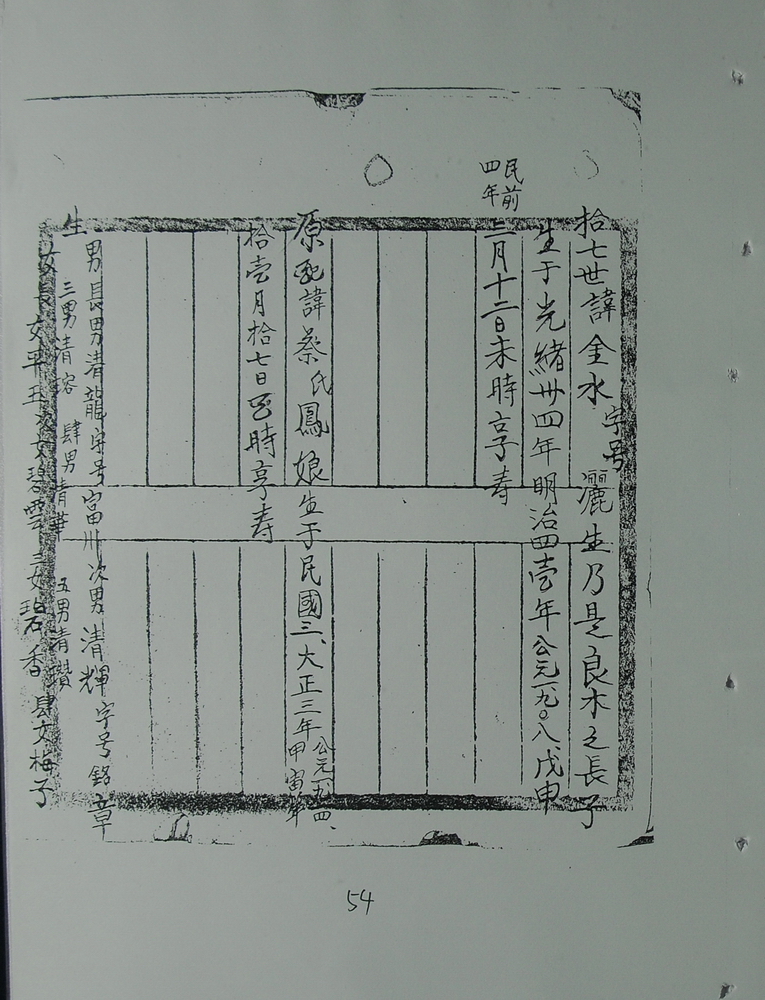 拾七世諱金水字号灑生乃是良木之長子
生于光緒卅四年明治四壹年公元一九〇八戊申
民前四年
三月十二日未時享寿
原配諱蔡氏鳳娘生于民國三、大正三年公元一九一四、甲寅年
拾壹月拾七日巳時享寿
生男長男清龍字号富州次男清輝字号銘章
三男清溶 肆男清華 五男清瓚
女長女平玉次女碧雲三女碧香肆女梅子
54